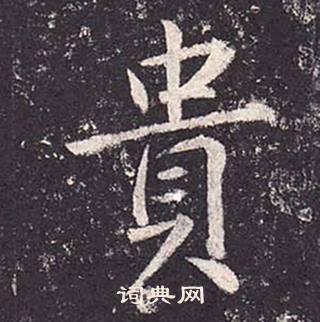 貴
词典网